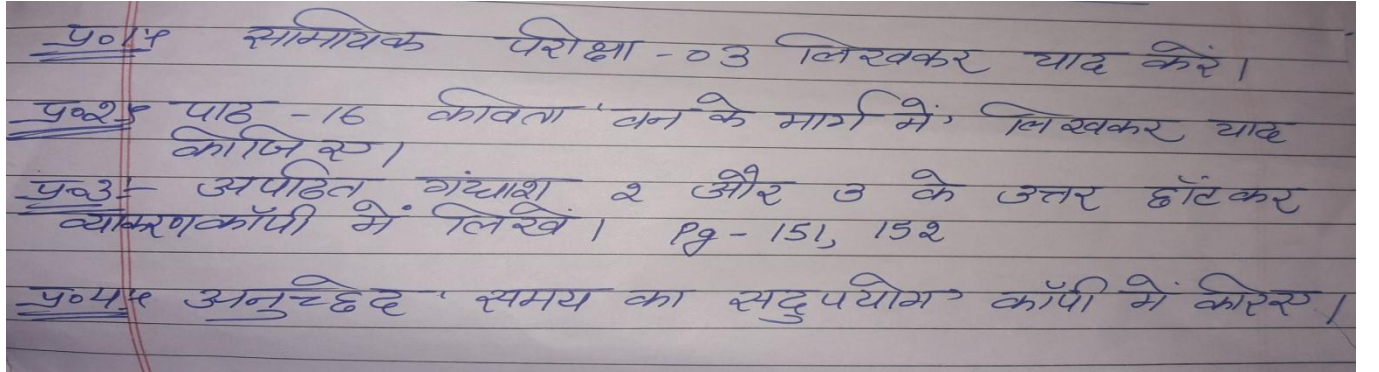 प्र०1:- सामायिक परीक्षा - ०3 लिखकर याद करें।
प्र०२:- पाठ - 16 कविता 'वन के मार्ग में' लिखकर याद
कीजिए।
प्र०3:- अपठित गंद्याश २ और 3 के उत्तर छाँटकर
व्याकरणकॉपी में लिखें। Pg - 151, 15२
प्र०4:- अनुच्छेद 'समय का सदुपयोग' कॉपी में करिए।